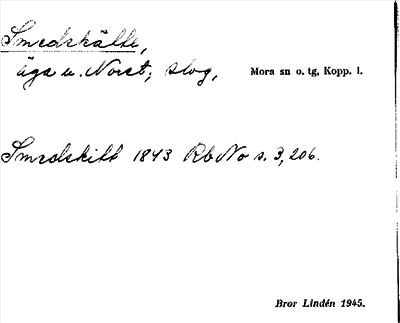 Smedskälte,
äga u. Noret, skog, Mora sn o. tg, Kopp. l.
Smedskitt 1843 Rb No s. 3, 206.
Bror Lindén 1945.